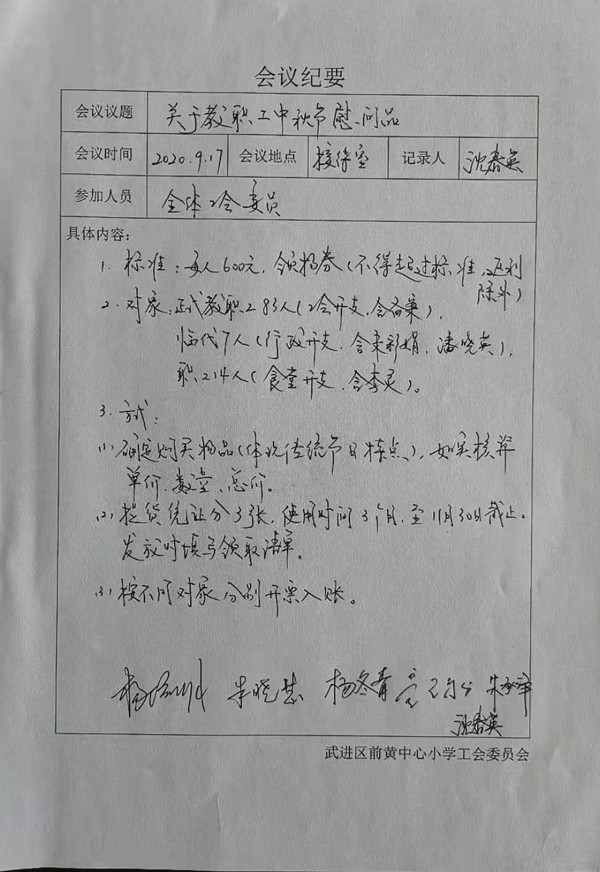 会议纪要
会议议题 关于教职工中秋节慰问品
会议时间 2020.9.17 会议地点 接待室 记录人 沈春英
参加人员 全体工会委员
具体内容：
1. 标准：每人600元，领物券（不得超过标准，返利
除外）
2. 对象：正式教职工83人（工会开支，含
临代7人（行政开支，含 彩娟、潘晓英），
职工14人（食堂开支，含李灵）。
3. 方式：
(1) 确定购买物品（体现传统节日特点），如实核算
单价、数量、总价。
(2) 提货凭证分3张，使用时间3个月，至11月30日截止。
发放时填写领取清单。
(3) 按不同对象分别开票入账。
朱晓慧 杨冬青
沈春英
武进区前黄中心小学工会委员会